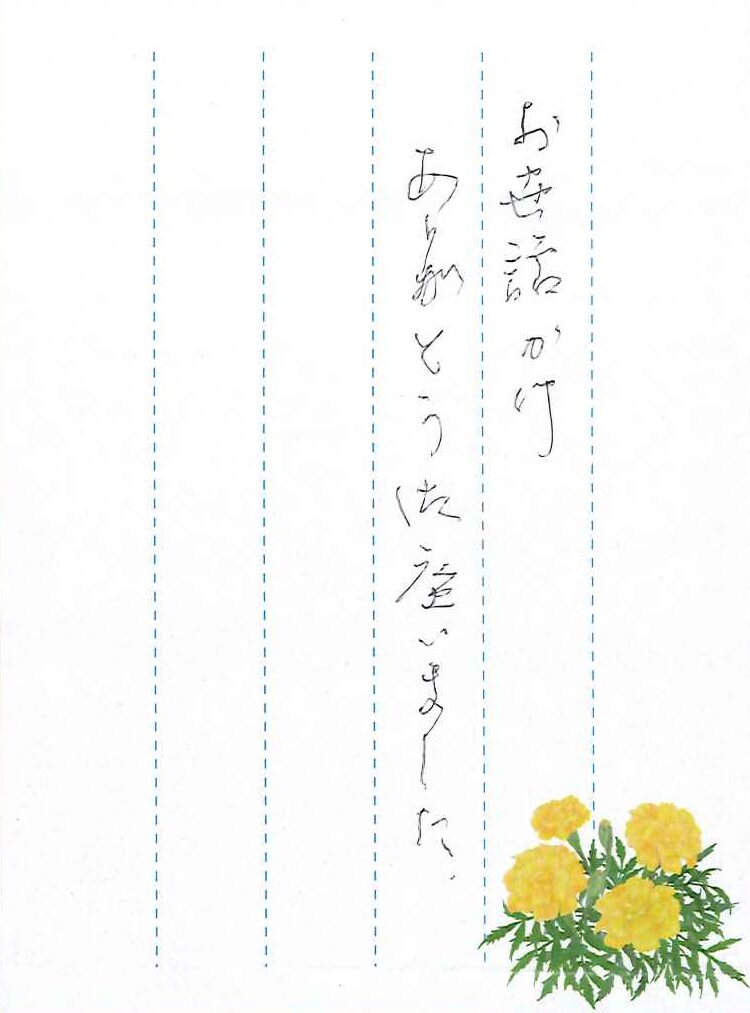 お世話かけ
ありがとう御座いました。